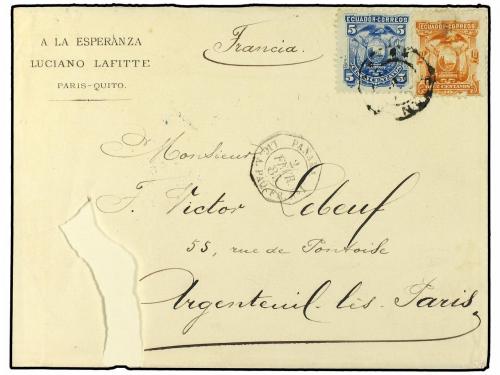 A LA ESPERÀNZA
LUCIANO LAFITTE
PARIS-QUITO.
Francia.
ECUADOR-CORREOS
5 5
ECUADOR-CORREOS
DIEZ CENTAVOS
PANAMA
2
FEVR
Monsieur
F. Victor Lebeuf
55, rue de Pontoise
Argenteuil lès Paris